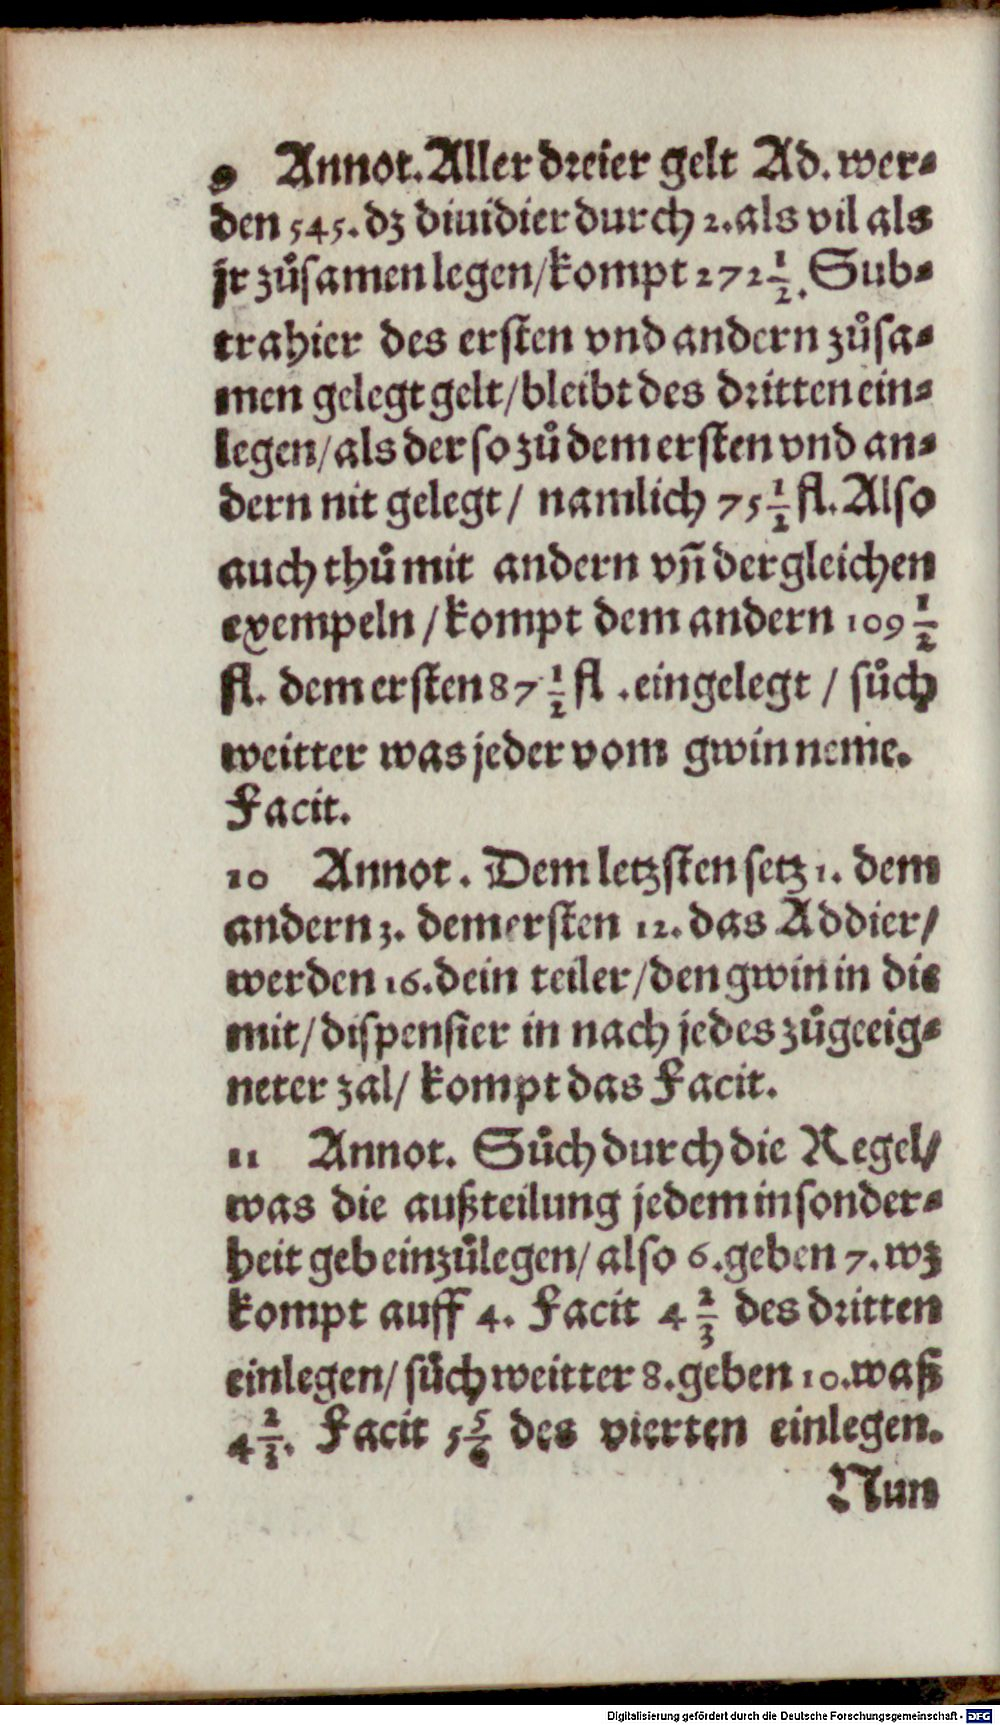 9 Annot. Aller dreier gelt Ad. wer-
den 545. dz diuidier durch 2. als vil als
jr zuͦsamen legen/ kompt 272 1/2. Sub-
trahier des ersten vnd andern zuͦsa-
men gelegt gelt/ bleibt des dritten ein-
legen/ als der so zuͦ dem ersten vnd an-
dern nit gelegt/ namlich 75 1/2 fl. Also
auch thuͦ mit andern vñ dergleichen
exempeln/ kompt dem andern 109 1/2
fl. dem ersten 87 1/2 fl. eingelegt/ suͦch
weitter was jeder vom gwin neme.
Facit.
10 Annot. Dem letzsten setz 1. dem
andern 3. dem ersten 12. das Addier/
werden 16. dein teiler/ den gwin in die
mit/ dispensier in nach jedes zuͦgeeig-
neter zal/ kompt das Facit.
11 Annot. Suͦch durch die Regel/
was die außteilung jedem insonder-
heit geb einzuͦlegen/ also 6. geben 7. wz
kompt auff 4. Facit 4 2/3 des dritten
einlegen/ suͦch weitter 8. geben 10. waß
4 2/3. Facit 5 5/6 des vierten einlegen.
Nun
Digitalisierung gefördert durch die Deutsche Forschungsgemeinschaft - DFG